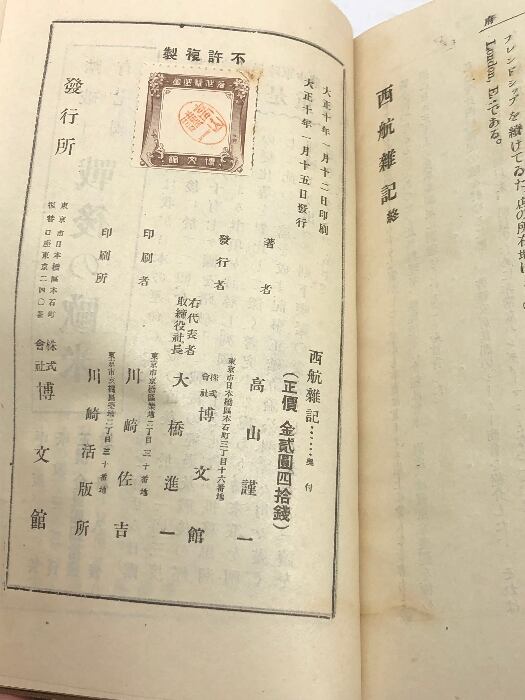 フレンドシップを續けてゐた
London E.である。
西航雜記 終
不許複製
博文館
大正十年一月十二日印刷
大正十年一月十五日發行
西航雜記……奥付
(正價 金貳圓四拾錢)
著者 高山謹一
東京市日本橋區本石町三丁目十六番地
發行者 株式會社 博文館
右代表者
取締役社長 大橋進一
東京市京橋區築地二丁目三十番地
印刷者 川崎佐吉
東京市京橋區築地二丁目三十番地
印刷所 川崎活版所
發行所
東京市日本橋區本石町
振替口座東京二四〇番
株式會社 博文館